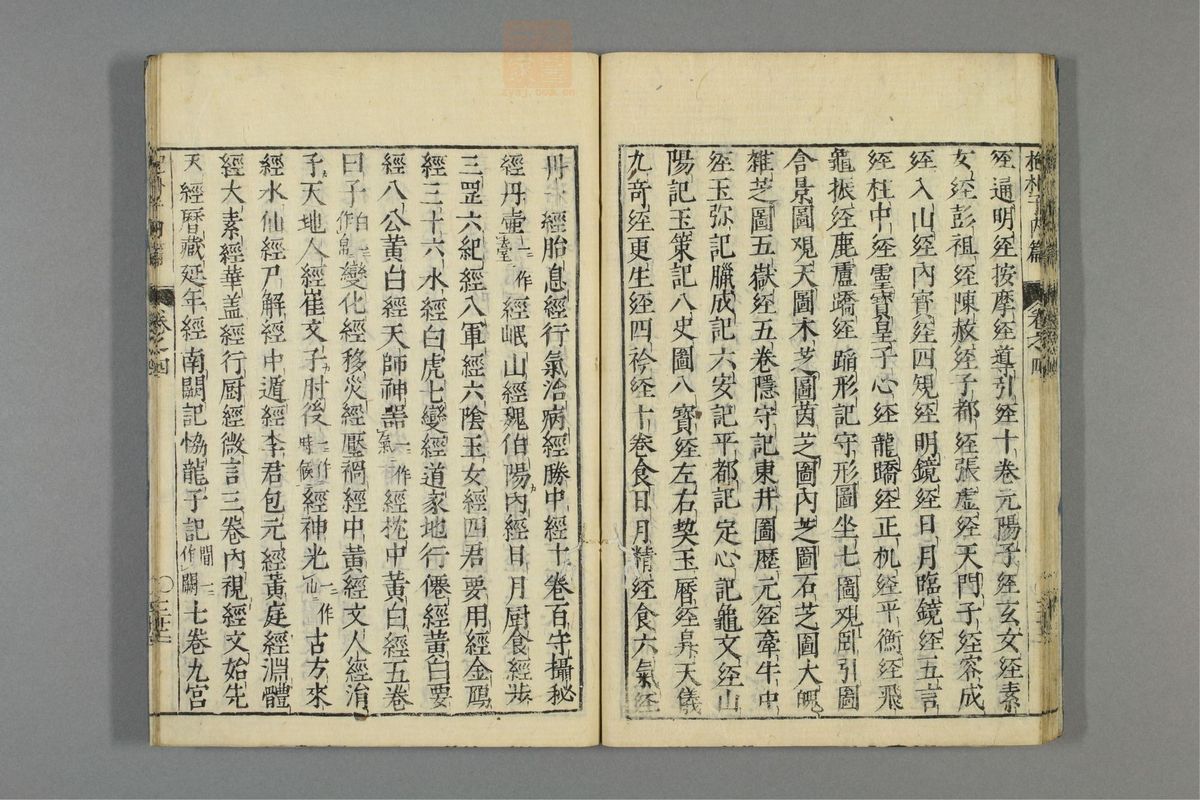 抱朴子內篇 卷之四
經通明經按摩經導引經十卷元陽子經玄女經素
女經彭祖經陳赦經子都經張虛經天門子經容成
經入山經內寶經四規經明鏡經日月臨鏡經五言
經柱中經靈寶皇子心經龍蹻經正机經平衡經飛
龜振經鹿盧蹻經蹈形記守形圖坐亾圖观卧引圖
含景圖观天圖木芝圖茵芝圖內芝圖石芝圖大魄
雜芝圖五嶽經五卷隱守記東井圖歷元經牽牛中
經玉弥記臘成記六安記平都記定心記龜文經山
陽記玉策記八史圖八寶經左右契玉曆經昇天儀
九奇經更生經四衿經十卷食日月精經食六氣經
丹一經胎息經行氣治病經勝中經十卷百守攝秘
經丹壷一作臺經岷山經魏伯陽內經日月厨食經步
三罡六紀經入軍經六陰玉女經四君要用經金鴈
經三十六水經白虎七變經道家地行僊經黃白要
經八公黃白經天師神器一作氣經枕中黃白經五卷
曰子一作帛變化經移災經壓禍經中黃經文人經治
子天地人經崔文子肘後一作時候經神光一作仙占方來
經水仙經尸解經中遁經李君包元經黃庭經淵體
經大素經華盖經行厨經微言三卷內視經文始先
天經曆藏延年經南闕記恊龍子記間一作闢七卷九宮
卷之四